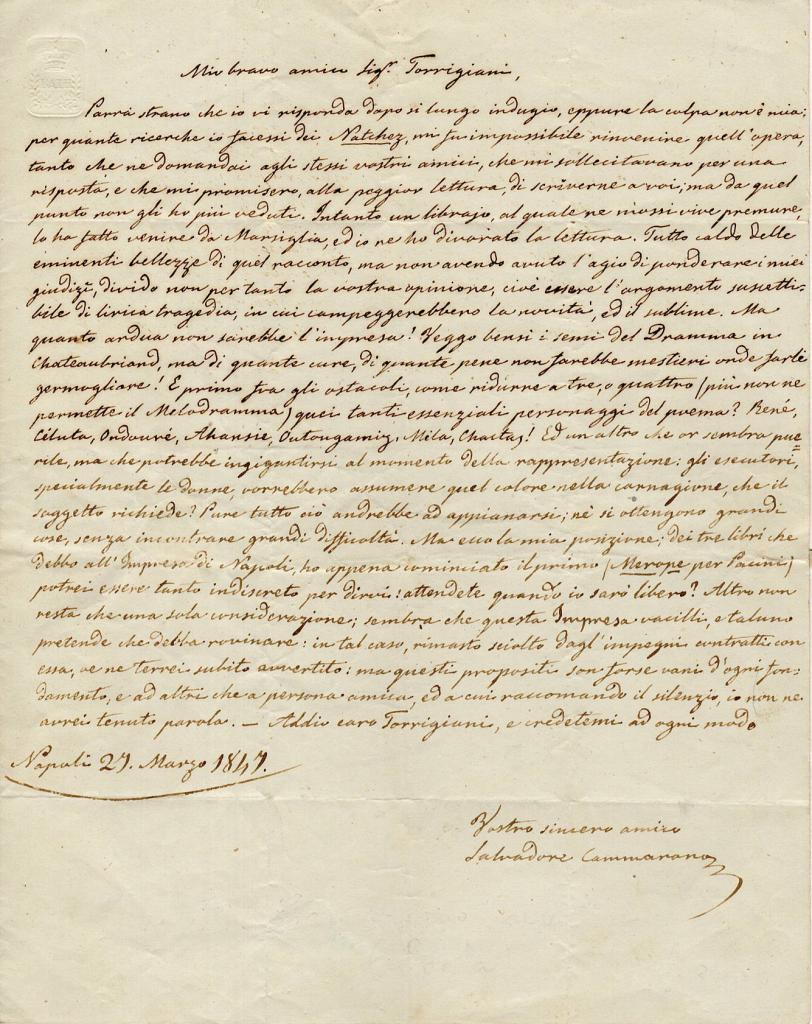 Mio bravo amico Sigr. Torrigiani,
Parrà strano che io vi risponda dopo sì lungo indugio, eppure la colpa non è mia;
per quante ricerche io facessi dei Natchez, mi fu impossibile rinvenire quell'opera,
tanto che ne domandai agli stessi vostri amici, che mi sollecitavano per una
risposta, e che mi promisero, alla peggior lettura, di scriverne a voi; ma da quel
punto non gli ho più veduti. Intanto un librajo, al quale ne mossi vive premure,
lo ha fatto venire da Marsiglia, ed io ne ho divorato la lettura. Tutto caldo delle
eminenti bellezze di quel racconto, ma non avendo avuto l'agio di ponderare i miei
giudizî, divido non per tanto la vostra opinione, cioè essere l'argomento suscetti-
bile di lirica tragedia, in cui campeggerebbero la novità, ed il sublime. Ma
quanto ardua non sarebbe l'impresa! Veggo bensì i semi del Dramma in
Chateaubriand, ma di quante cure, di quante pene non farebbe mestieri onde farli
germogliare! E primo fra gli ostacoli, come ridurre a tre, o quattro (più non ne
permette il Melodramma) quei tanti essenziali personaggi del poema? René,
Celuta, Ondouré, Akansie, Outougamiz, Mila, Chactas! Ed un altro che or sembra pue=
rile, ma che potrebbe ingigantirsi al momento della rappresentazione: gli esecutori,
specialmente le donne, vorrebbero assumere quel colore nella carnagione, che il
soggetto richiede? Pure tutto ciò andrebbe ad appianarsi; nè si ottengono grandi
cose, senza incontrare grandi difficoltà. Ma ecco la mia posizione; dei tre libri che
debbo all'Impresa di Napoli, ho appena cominciato il primo (Merope per Pacini)
potrei essere tanto indiscreto per dirvi: attendete quando io sarò libero? Altro non
resta che una sola considerazione; sembra che questa Impresa vacilli, e taluno
pretende che debba rovinare: in tal caso, rimasto sciolto dagl'impegni contratti con
essa, ve ne terrei subito avvertito: ma questi propositi son forse vani d'ogni fon-
damento, e ad altri che a persona amica, ed a cui raccomando il silenzio, io non ne
avrei tenuto parola. — Addio caro Torrigiani, e credetemi ad ogni modo
Napoli 27. Marzo 1847.
Vostro sincero amico
Salvadore Cammarano